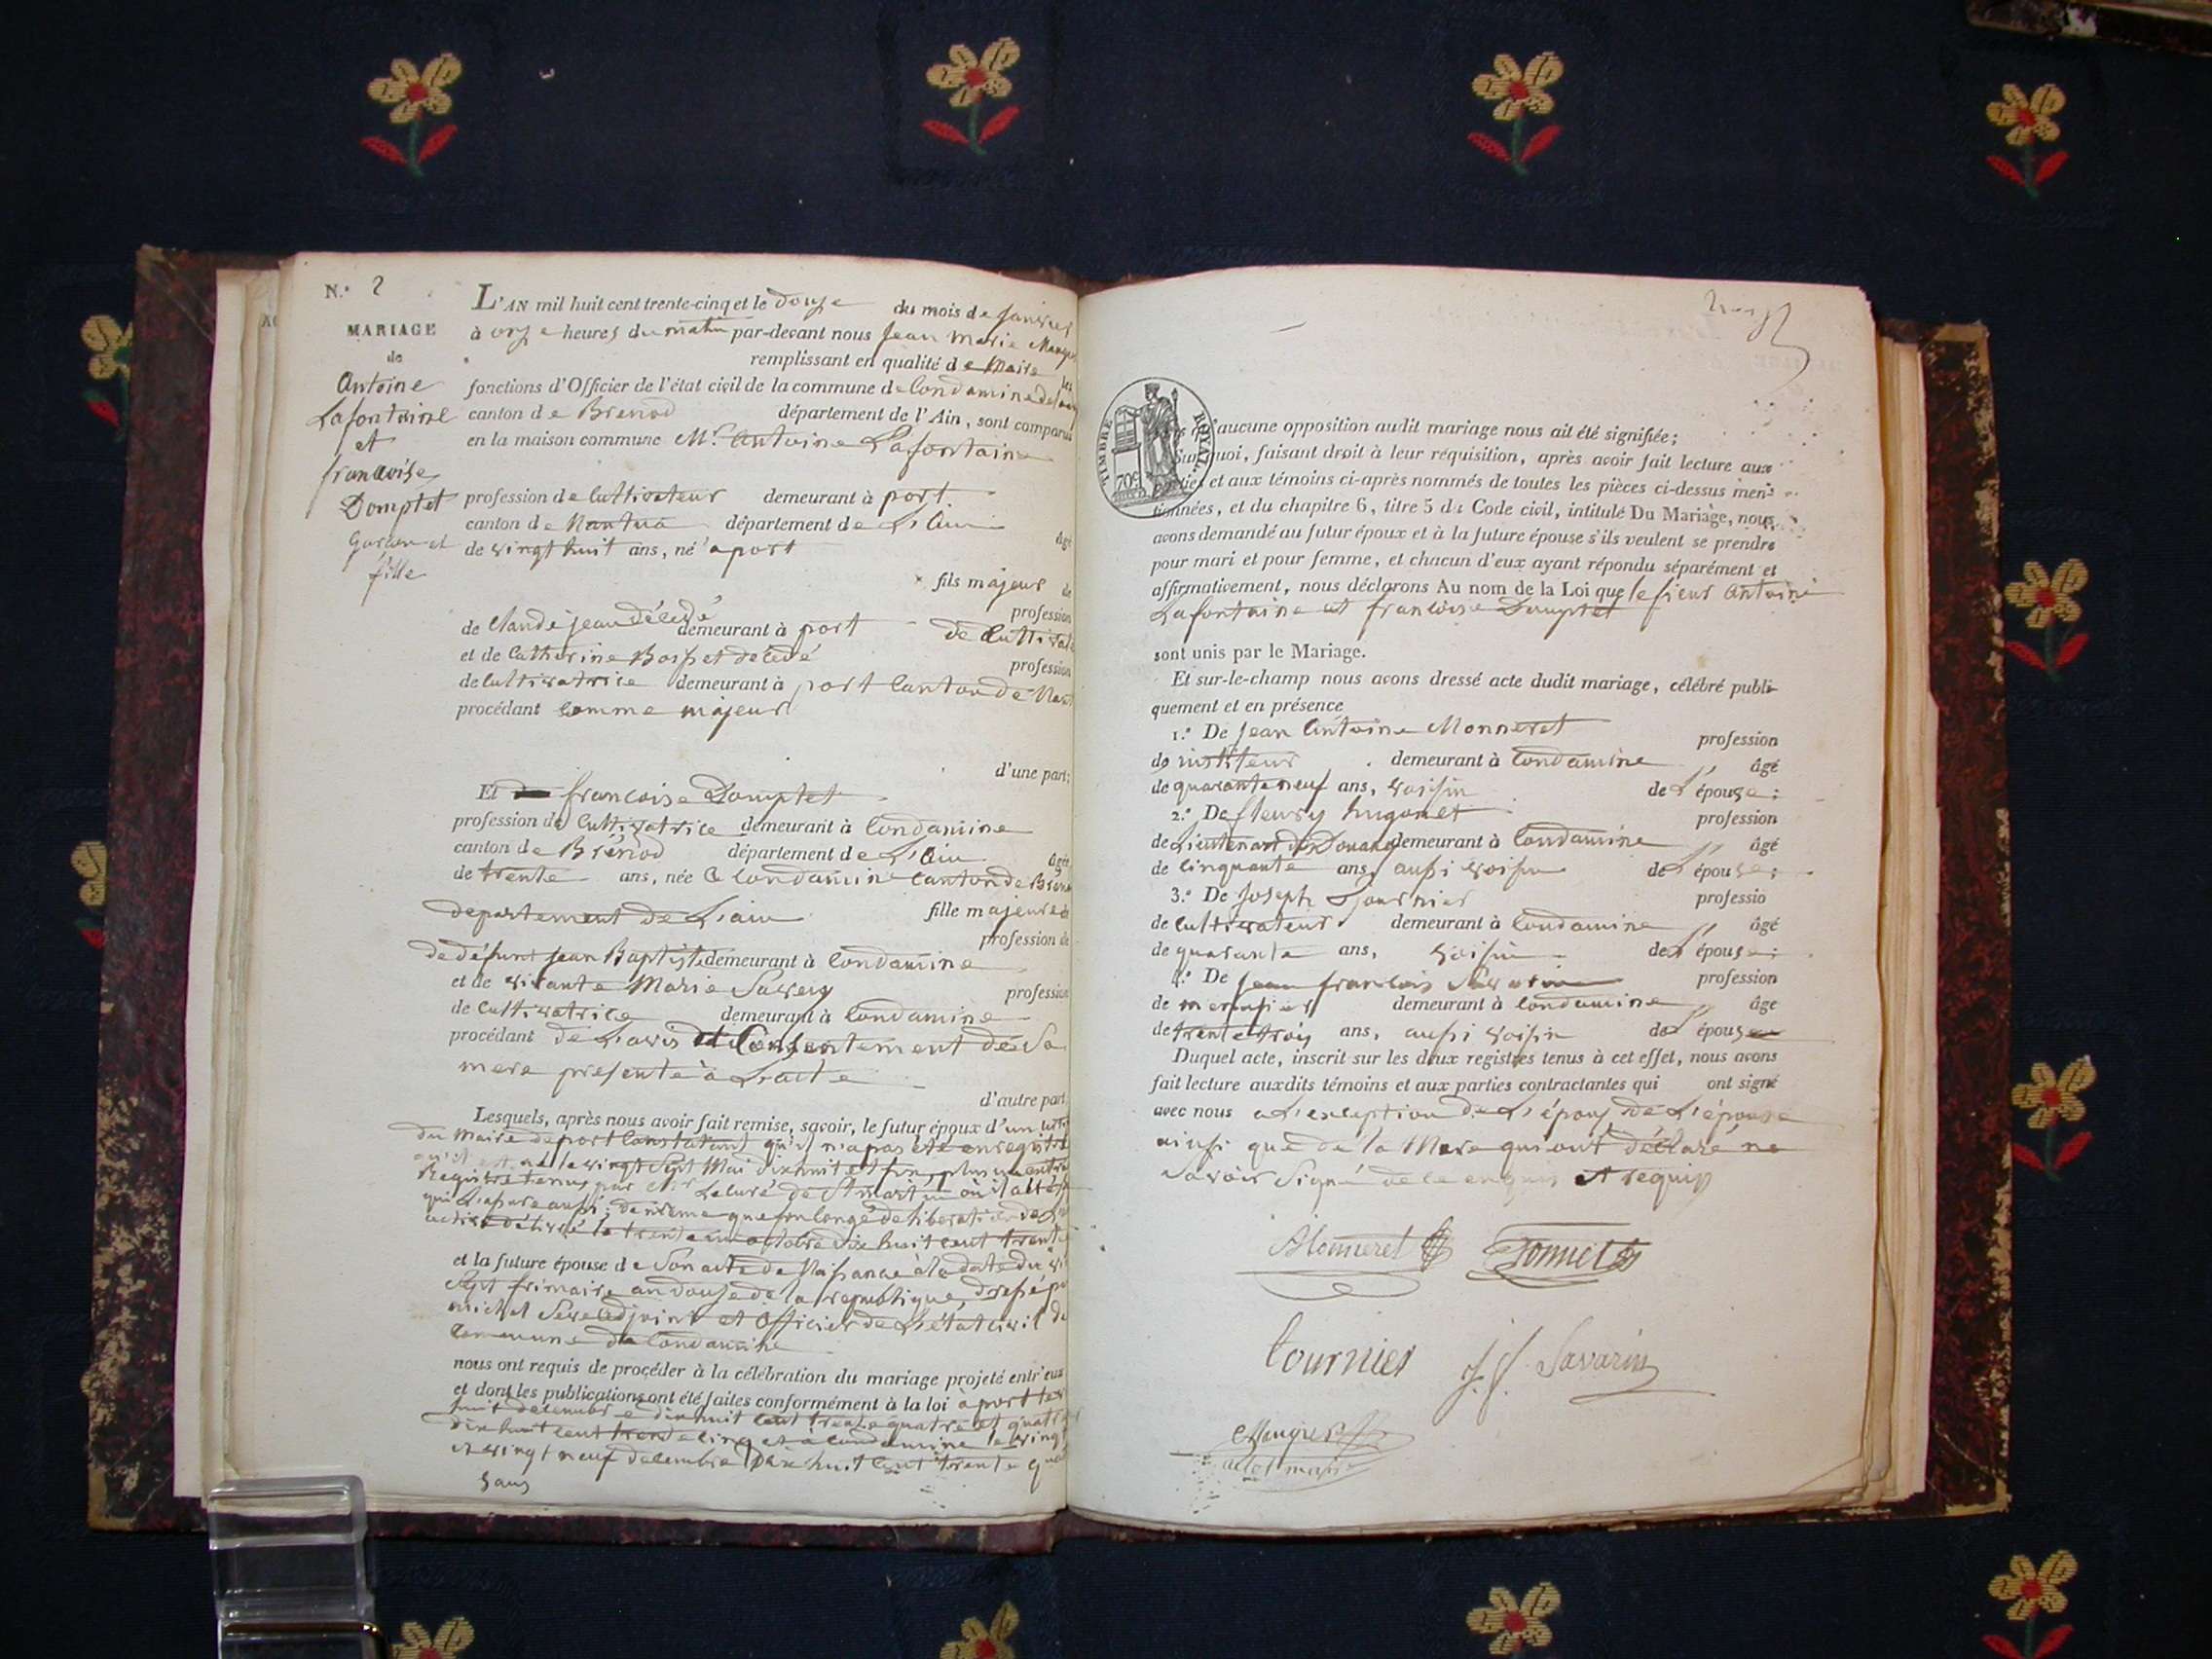 N.° 2
MARIAGE
de
Antoine
Lafontaine
et
francoise
Domptet
Garcon et
fille
L'AN mil huit cent trente-cinq et le douze du mois de Janvier
à onze heures du matin par-devant nous Jean Marie
remplissant en qualité de Maire les
fonctions d'Officier de l'état civil de la commune de Condamine de
canton de Brenod département de l'Ain, sont comparus
en la maison commune Mr. Antoine Lafontaine
profession de Cultivateur demeurant à port
canton de Nantua département de L'Ain âgé
de vingt huit ans, né a port
fils majeur de
de Claude jean décédé profession
demeurant à port de Cultivat
et de Catherine Bosset décédé profession
de Cultivatrice demeurant à port Canton de Nan
procédant comme majeur
d'une part;
Et francoise Domptet
profession de Cultivatrice demeurant à Condamine
canton de Brénod département de L'Ain âgée
de trente ans, née a Condamine Canton de Breno
departement de L'ain fille majeure de
profession de
de défunt Jean Baptiste demeurant à Condamine
et de vivante Marie Savery profession
de Cultivatrice demeurant à Condamine
procédant de L'avis et Consentement de Sa
mere presente à L'acte
d'autre part.
Lesquels, après nous avoir fait remise, savoir, le futur époux d'un
du Maire de port Constatant qu'il n'a pas été enregistré
né le vingt Sept Mai dixhuit cent six, plus un
Registre tenus par Mr Le curé de St martin où il a été
qui L'apure aussi; de même que son congé de liberation de
délivré le trente un octobre dix huit cent trente
et la future épouse de Son acte de Naissance à la date du
Sept frimaire an douze de la republique, dressé par
michel adjoint et Officier de L'état Civil de
Commune de Condamine
nous ont requis de procéder à la célébration du mariage projeté entr'eux
et dont les publications ont été faites conformément à la loi à port le
huit decembre dix huit cent trente quatre et quatre
dix huit cent trente cinq et à Condamine le vingt
et vingt neuf decembre Dix huit cent trente
sans
TIMBRE ROYAL
70c
aucune opposition audit mariage nous ait été signifiée;
Sur quoi, faisant droit à leur réquisition, après avoir fait lecture aux
parties et aux témoins ci-après nommés de toutes les pièces ci-dessus men-
tionnées, et du chapitre 6, titre 5 du Code civil, intitulé Du Mariage, nous
avons demandé au futur époux et à la future épouse s'ils veulent se prendre
pour mari et pour femme, et chacun d'eux ayant répondu séparément et
affirmativement, nous déclarons Au nom de la Loi que le sieur Antoine
Lafontaine et francoise Domptet
sont unis par le Mariage.
Et sur-le-champ nous avons dressé acte dudit mariage, célébré publi-
quement et en présence
1.° De Jean Antoine Monneret profession
de instituteur demeurant à Condamine âgé
de quarante neuf ans, voisin de L'épouse;
2.° De fleury hugonet profession
de Lieutenant de Douane demeurant à Condamine âgé
de cinquante ans, aussi voisin de L'épouse;
3.° De Joseph Tournier professio
de Cultivateur demeurant à Condamine âgé
de quarante ans, voisin de L'épouse;
4.° De Jean francois Savarin profession
de menusier demeurant à Condamine âge
de trente trois ans, aussi voisin de L'épouse
Duquel acte, inscrit sur les deux registres tenus à cet effet, nous avons
fait lecture auxdits témoins et aux parties contractantes qui ont signé
avec nous a L'exception de L'époux de L'épouse
ainsi que de la Mere qui ont déclaré ne
Savoir Signé de ce enquis et requis
Monneret
tournier J. f. Savarin